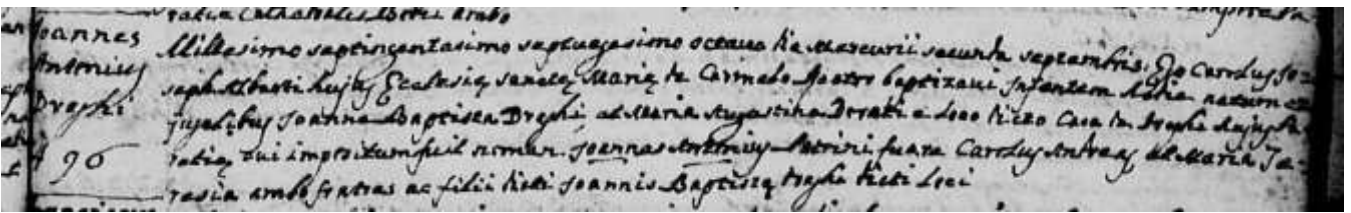 ratia Cathedralis Loci ambo
Joannes
Antonius
Dreghi
N 96
Millesimo septingentesimo septuagesimo octavo die Mercurii secunda septembris. Ego Carolus Jo=
seph Alberti hujus Ecclesię sanctę Marię de Carmelo baptizavi Infantem hodie natum ex
jugalibus Joanne Baptista Dreghi, et Maria Augustina a loco dicto Casa de Dreghe hujus Pa=
ratię cui impositum fuit nomen Joannes Antonius Patrini fuere Carolus Andreas et Maria Te=
resia ambo fratres ac filii dicti Joannis Baptistę Dreghe dicti Loci